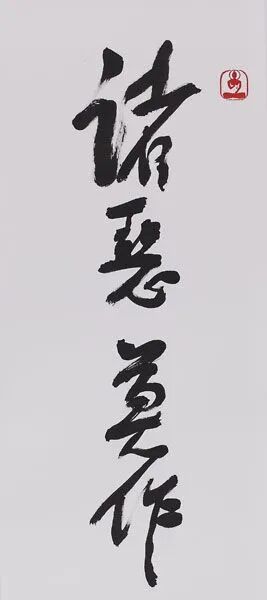 諸惡莫作